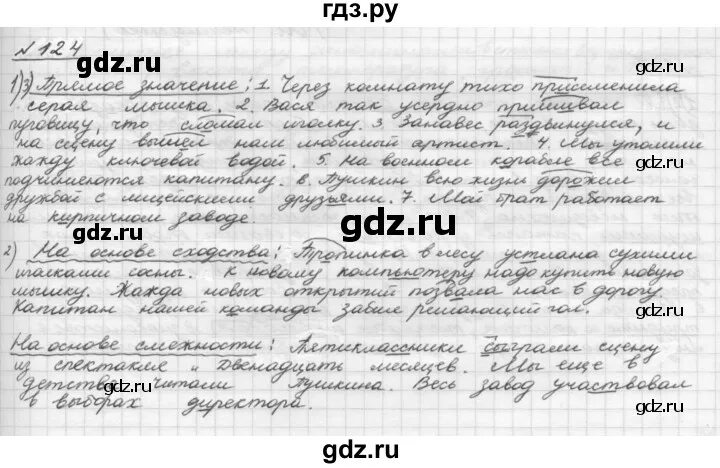 гдз.ру
№124
1)3) Прямое значение: 1. Через комнату тихо присеменила
серая мышка. 2. Вася так усердно пришивал
пуговицу, что сломал иголку. 3. Занавес раздвинулся, и
на сцену вышел наш любимый артист. 4. Мы утолили
жажду ключевой водой. 5. На военном корабле все
подчиняются капитану. 6. Пушкин всю жизнь дорожил
дружбой с лицейскими друзьями. 7. Мой брат работает
на кирпичном заводе.
2) На основе сходства: Тропинка в лесу устлана сухими
иголками сосны. К новому компьютеру надо купить новую
мышку. Жажда новых открытий позвала нас в дорогу.
Капитан нашей команды забил решающий гол.
На основе смежности: Пятиклассники сыграли сцену
из спектакля „Двенадцать месяцев. Мы еще в
детстве читали Пушкина. Весь завод участвовал
в выборах директора.
gdz.ru
gdz.ru
gdz.ru
gdz.ru
gdz.ru
gdz.ru
gdz.ru
gdz.ru
gdz.ru
gdz.ru
gdz.ru
gdz.ru
gdz.ru
gdz.ru